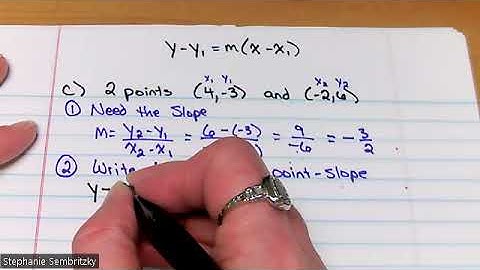 y-y₁ = m(x-x₁)
c) 2 points (4,-3) and (-2,6)
x₁ y₁ x₂ y₂
① Need the Slope
M= y₂-y₁ / x₂-x₁ = 6-(-3) / = 9 / -6 = - 3 / 2
② Write point-slope
y-
Stephanie Sembritzky